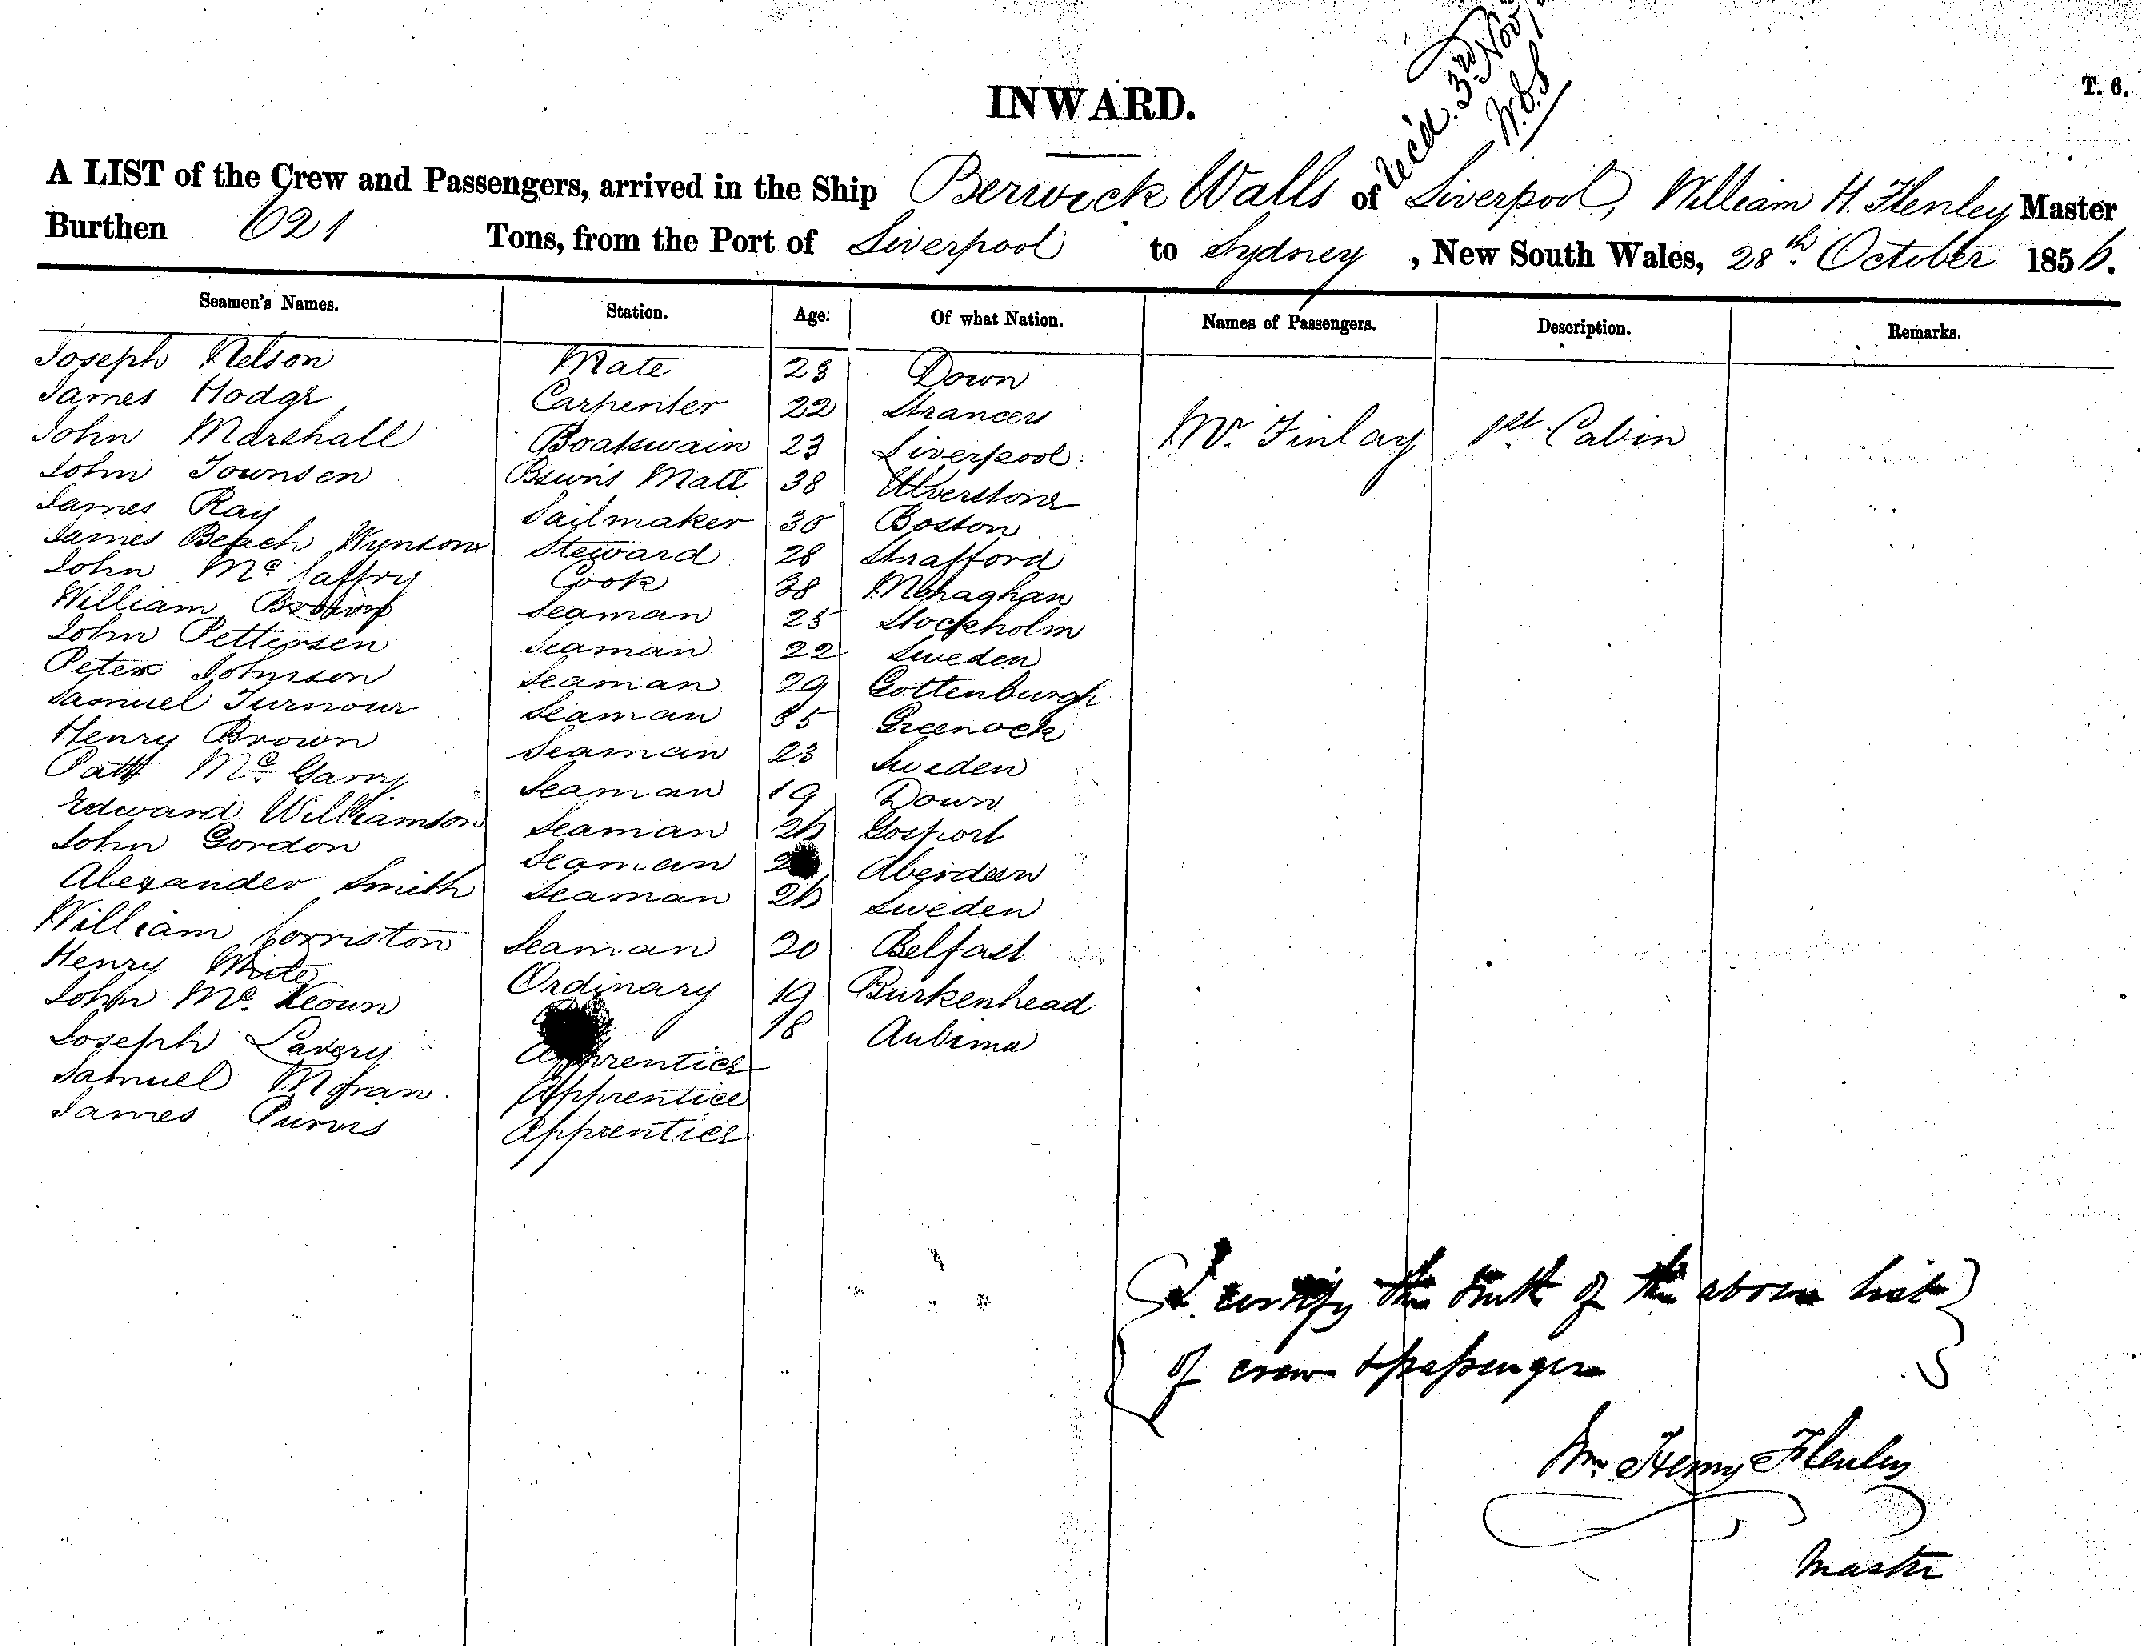 Rec'd. 3rd Nov
INWARD.
T. 6.
A LIST of the Crew and Passengers, arrived in the Ship Berwick Walls of Liverpool, William H. Flenley Master
Burthen 621 Tons, from the Port of Liverpool to Sydney, New South Wales, 28th October 1856.
Seamen's Names. Station. Age. Of what Nation. Names of Passengers. Description. Remarks.
Joseph Nelson Mate 23 Down
James Hodge Carpenter 22 Stranceer
Mr. Finlay 1st Cabin
John Marshall Boatswain 23 Liverpool
John Townsen Bswn's Mate 38 Ulverstone
James Ray Sailmaker 30 Boston
James Beach Wynsome Steward 28 Strafford
John Mc Caffry Cook 38 Monaghan
William Brown Seaman 25 Stockholm
John Pettersen Seaman 22 Sweden
Peter Johnson Seaman 29 Gottenburgh
Samuel Turnour Seaman 35 Greenock
Henry Brown Seaman 23 Sweden
Patk Mc Garry Seaman 19 Down
Edward Williamson Seaman 26 Gosport
John Gordon Seaman Aberdeen
Alexander Smith Seaman 26 Sweden
William Corriston Seaman 20 Belfast
Henry White Ordinary 19 Burkenhead
John Mc Keown 18
Joseph Lavery Apprentice
Samuel Moran Apprentice
James Purvis Apprentice
I certify the truth of the above list
of crew & passengers
Wm Henry Flenley
Master